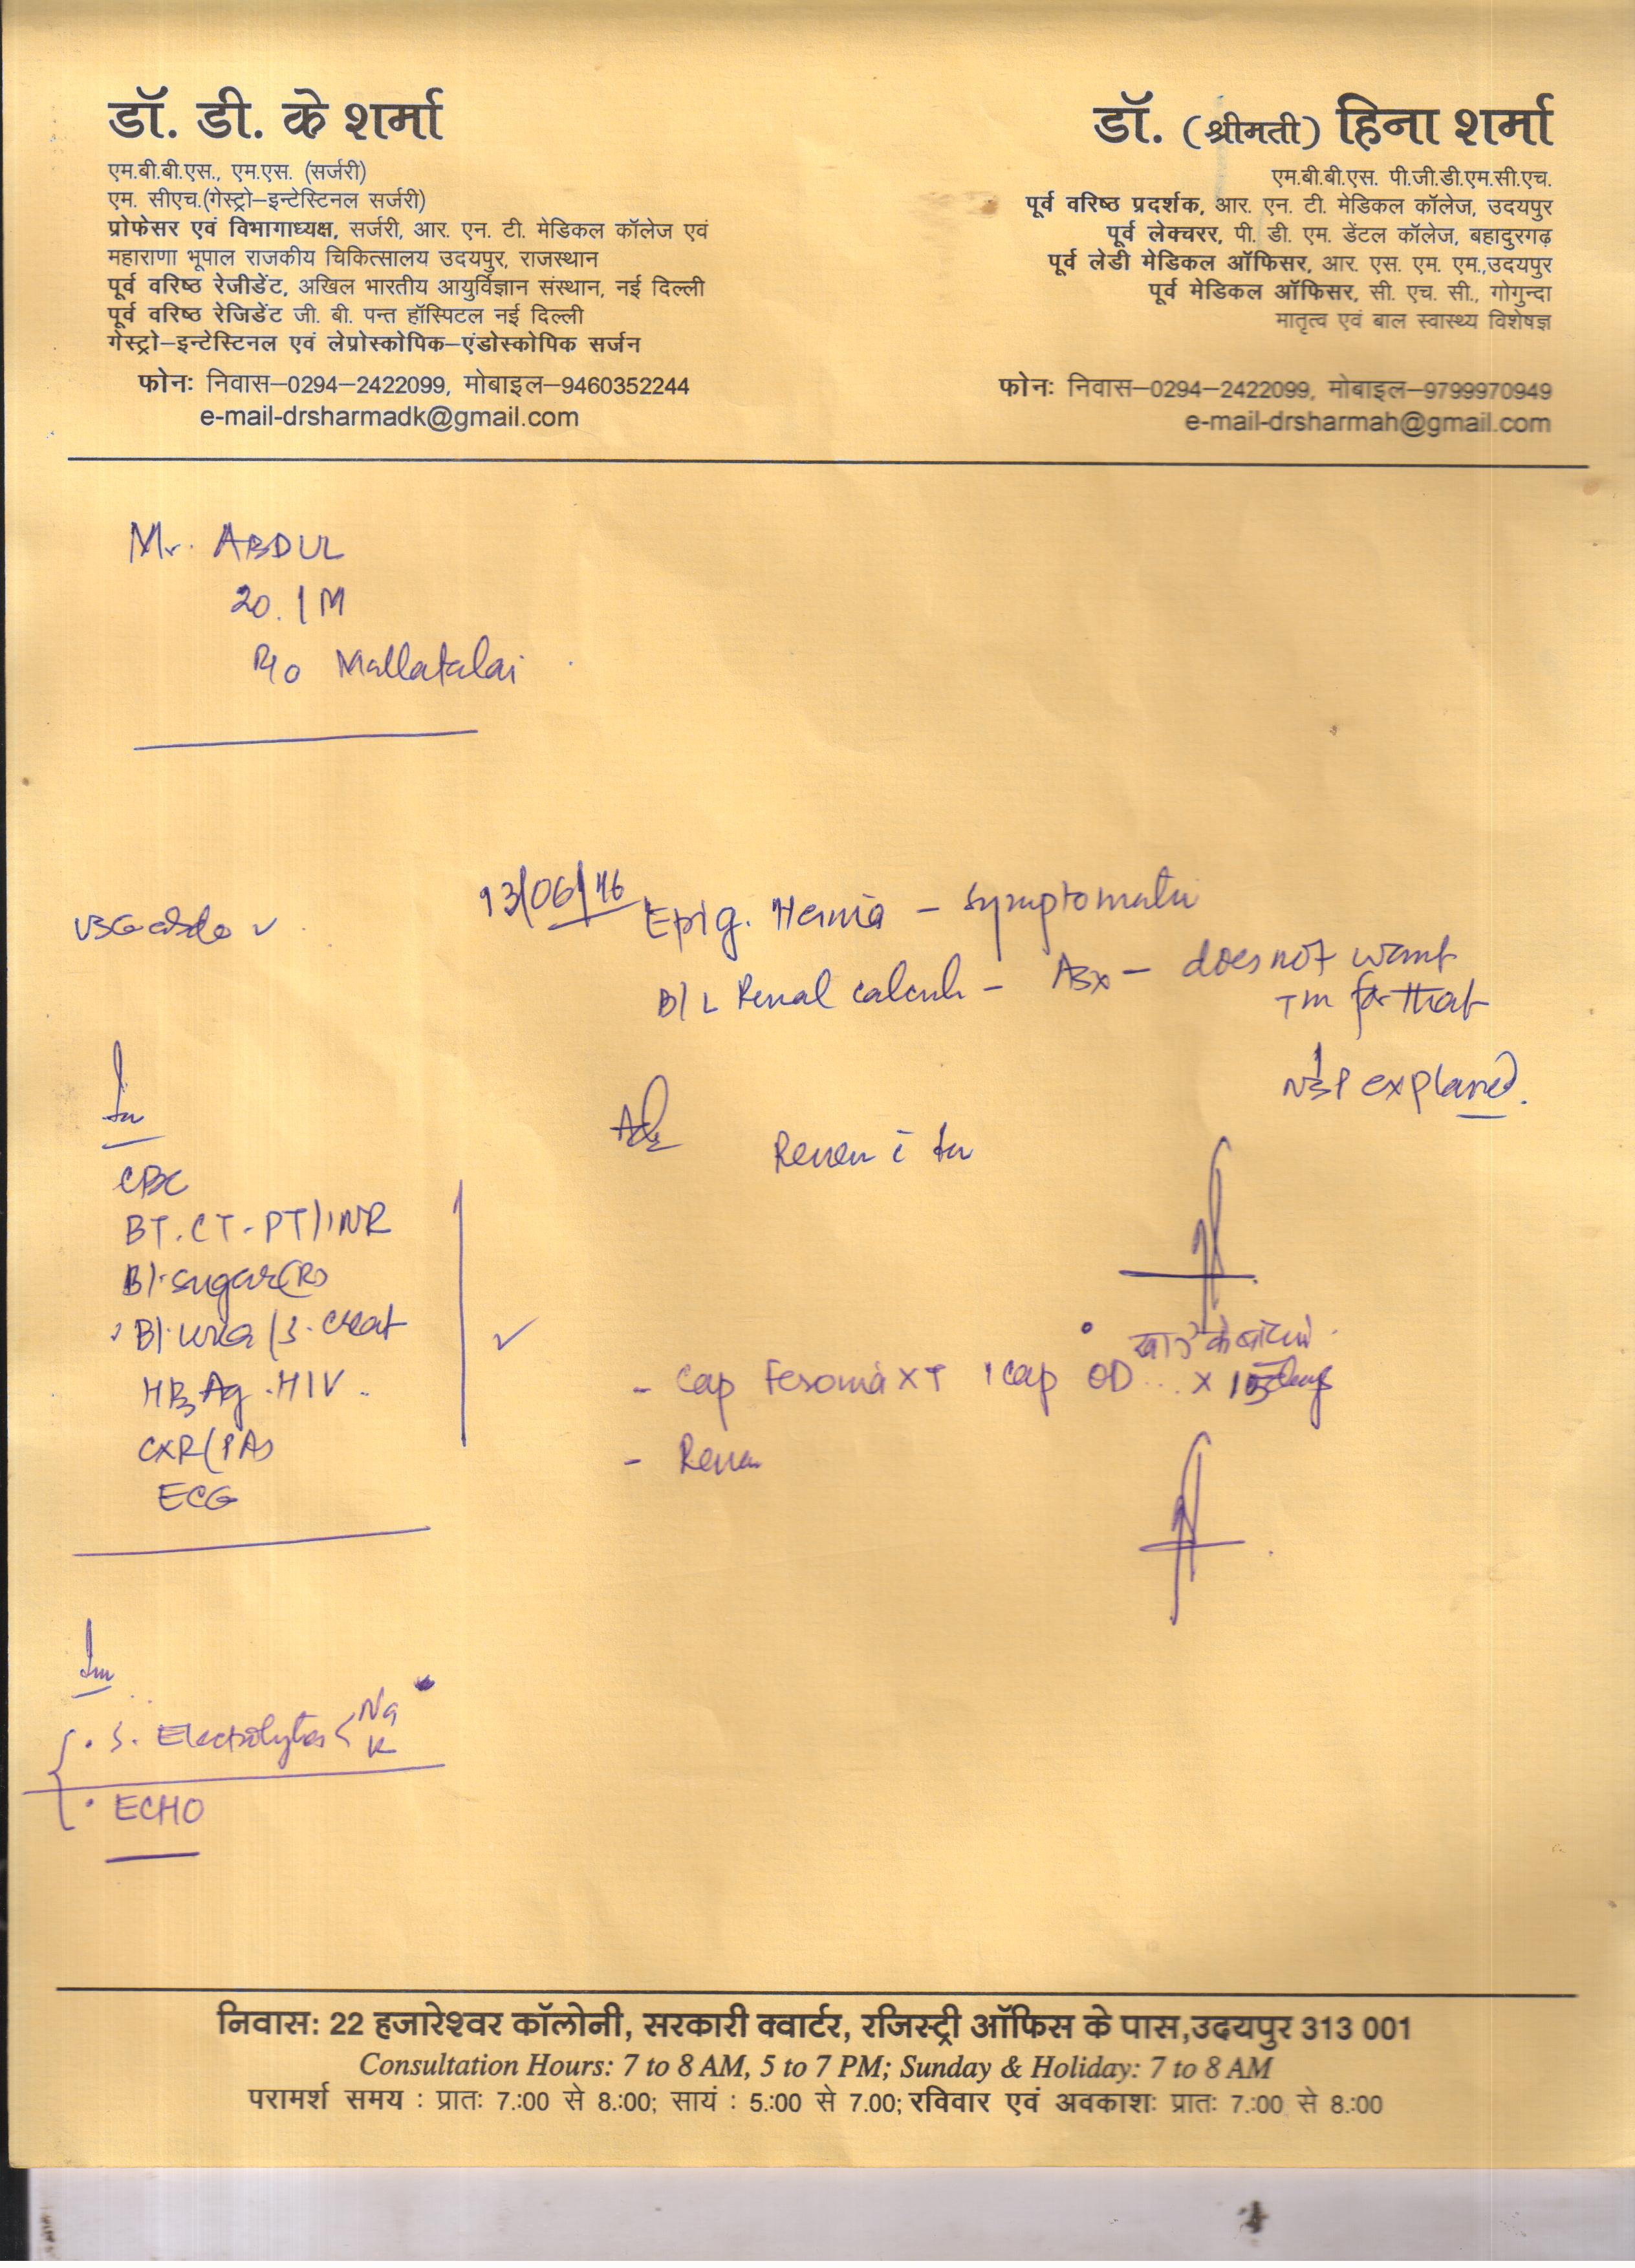 डॉ. डी. के शर्मा
एम.बी.बी.एस., एम.एस. (सर्जरी)
एम. सीएच.(गेस्ट्रो–इन्टेस्टिनल सर्जरी)
प्रोफेसर एवं विभागाध्यक्ष, सर्जरी, आर. एन. टी. मेडिकल कॉलेज एवं
महाराणा भूपाल राजकीय चिकित्सालय उदयपुर, राजस्थान
पूर्व वरिष्ठ रेजीडेंट, अखिल भारतीय आयुर्विज्ञान संस्थान, नई दिल्ली
पूर्व वरिष्ठ रेजिडेंट जी. बी. पन्त हॉस्पिटल नई दिल्ली
गेस्ट्रो–इन्टेस्टिनल एवं लेप्रोस्कोपिक–एंडोस्कोपिक सर्जन
फोनः निवास–0294–2422099, मोबाइल–9460352244
e-mail-drsharmadk@gmail.com
डॉ. (श्रीमती) हिना शर्मा
एम.बी.बी.एस. पी.जी.डी.एम.सी.एच.
पूर्व वरिष्ठ प्रदर्शक, आर. एन. टी. मेडिकल कॉलेज, उदयपुर
पूर्व लेक्चरर, पी. डी. एम. डेंटल कॉलेज, बहादुरगढ़
पूर्व लेडी मेडिकल ऑफिसर, आर. एस. एम. एम.,उदयपुर
पूर्व मेडिकल ऑफिसर, सी. एच. सी., गोगुन्दा
मातृत्व एवं बाल स्वास्थ्य विशेषज्ञ
फोनः निवास–0294–2422099, मोबाइल–9799970949
e-mail-drsharmah@gmail.com
Mr. ABDUL
20. / M
R/o Mallatalai
13/06/16
Epig. Hernia – symptomatic
B/L Renal calculi – ASx – does not want
for that
explained.
Adv
CBC
BT. CT. PT/INR
Bl. sugar (R)
Bl. urea / S. creat
HBsAg. HIV.
CXR (PA)
ECG
खाने के बाद
- Cap XT 1 cap OD .. x days
S. Electrolytes < Na
K
ECHO
निवासः 22 हजारेश्वर कॉलोनी, सरकारी क्वार्टर, रजिस्ट्री ऑफिस के पास,उदयपुर 313 001
Consultation Hours: 7 to 8 AM, 5 to 7 PM; Sunday & Holiday: 7 to 8 AM
परामर्श समय : प्रातः 7.:00 से 8.:00; सायं : 5.:00 से 7.00; रविवार एवं अवकाशः प्रातः 7.:00 से 8.:00